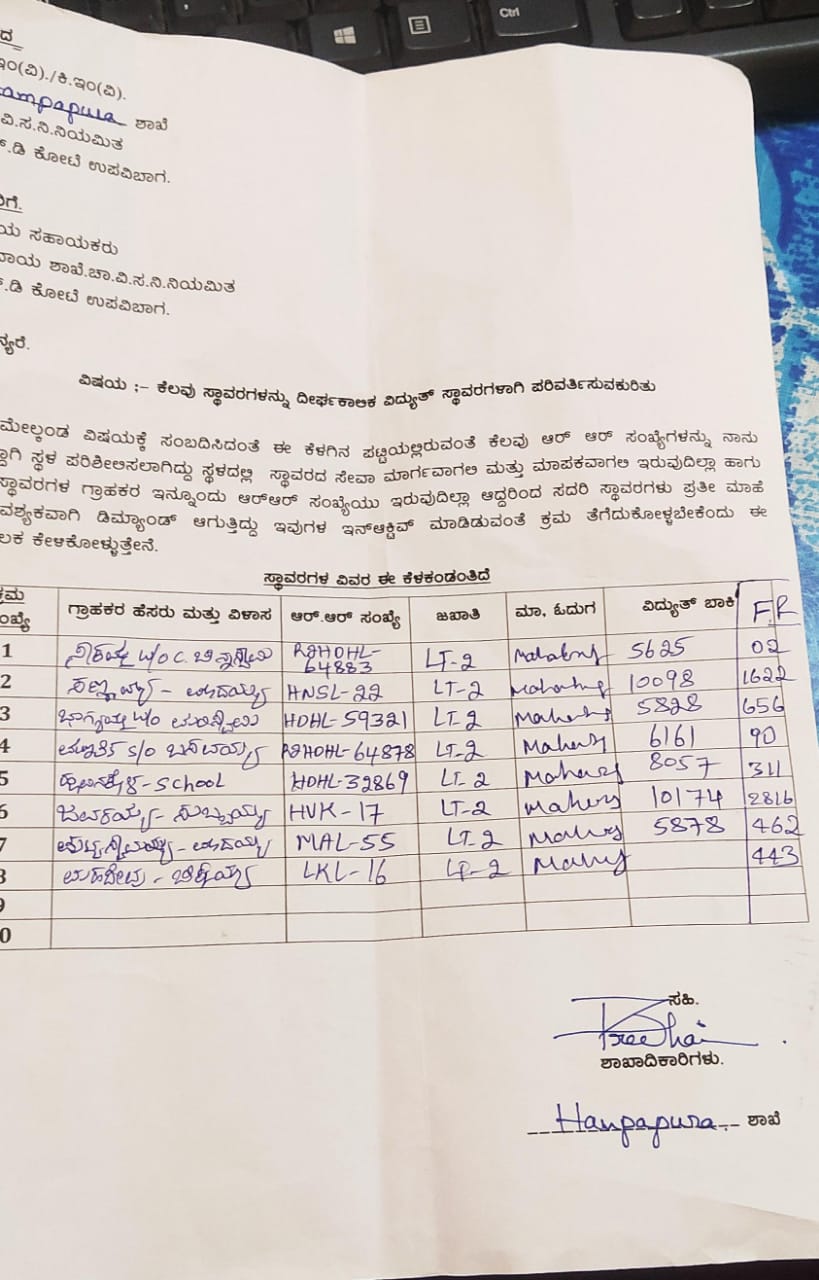 Ctrl
ದ
ಇಂ(ವಿ)./ಕಿ.ಇಂ(ವಿ).
ampapura ಶಾಖೆ
ವಿ.ಸ.ನಿ.ನಿಯಮಿತ
.ಡಿ ಕೋಟೆ ಉಪವಿಬಾಗ.
ರಿಗೆ.
ಯ ಸಹಾಯಕರು
ದಾಯ ಶಾಖೆ.ಚಾ.ವಿ.ಸ.ನಿ.ನಿಯಮಿತ
.ಡಿ ಕೋಟೆ ಉಪವಿಬಾಗ.
ನ್ಯರೆ.
ವಿಷಯ :- ಕೆಲವು ಸ್ಥಾವರಗಳನ್ನು ದೀರ್ಘಕಾಲಿಕ ವಿದ್ಯುತ್ ಸ್ಥಾವರಗಳಾಗಿ ಪರಿವರ್ತಿಸುವಕುರಿತು
ಮೇಲ್ಕಂಡ ವಿಷಯಕ್ಕೆ ಸಂಬದಿಸಿದಂತೆ ಈ ಕೆಳಗಿನ ಪಟ್ಟಿಯಲ್ಲಿರುವಂತೆ ಕೆಲವು ಆರ್ ಆರ್ ಸಂಖ್ಯೆಗಳನ್ನು ನಾನು
ದ್ದಾಗಿ ಸ್ಥಳ ಪರಿಶೀಲಿಸಲಾಗಿದ್ದು ಸ್ಥಳದಲ್ಲಿ ಸ್ಥಾವರದ ಸೇವಾ ಮಾರ್ಗವಾಗಲಿ ಮತ್ತು ಮಾಪಕವಾಗಲಿ ಇರುವುದಿಲ್ಲಾ ಹಾಗು
ಸ್ಥಾವರಗಳ ಗ್ರಾಹಕರ ಇನ್ನೂಂದು ಆರ್‌ಆರ್ ಸಂಖ್ಯೆಯು ಇರುವುದಿಲ್ಲಾ ಆದ್ದರಿಂದ ಸದರಿ ಸ್ಥಾವರಗಳು ಪ್ರತೀ ಮಾಹೆ
ವಶ್ಯಕವಾಗಿ ಡಿಮ್ಯಾಂಡ್ ಆಗುತ್ತಿದ್ದು ಇವುಗಳ ಇನ್‌ಆಕ್ಟಿವ್ ಮಾಡಿಡುವಂತೆ ಕ್ರಮ ತೆಗೆದುಕೋಳ್ಳಬೇಕೆಂದು ಈ
ಲಕ ಕೇಳಿಕೋಳ್ಳುತ್ತೇನೆ.
ಸ್ಥಾವರಗಳ ವಿವರ ಈ ಕೆಳಕಂಡಂತಿದೆ
ಕ್ರಮ ಸಂಖ್ಯೆ ಗ್ರಾಹಕರ ಹೆಸರು ಮತ್ತು ವಿಳಾಸ ಆರ್.ಆರ್ ಸಂಖ್ಯೆ ಜಖಾತಿ ಮಾ, ಓದುಗ ವಿದ್ಯುತ್ ಬಾಕಿ F.R
1 W/O C. RGHDHL-64883 LT-2 5625 02
2 HNSL-22 LT-2 10098 1622
3 W/O HDHL-59321 LT-2 5828 656
4 S/O RGHDHL-64878 LT-2 6161 90
5 School HDHL-32869 LT-2 8057 311
6 HVK-17 LT-2 10174 2816
7 MAL-55 LT-2 5878 462
8 LKL-16 LT-2 443
9
0
ಸಹಿ.
ಶಾಖಾದಿಕಾರಿಗಳು.
Hanpapura ಶಾಖೆ